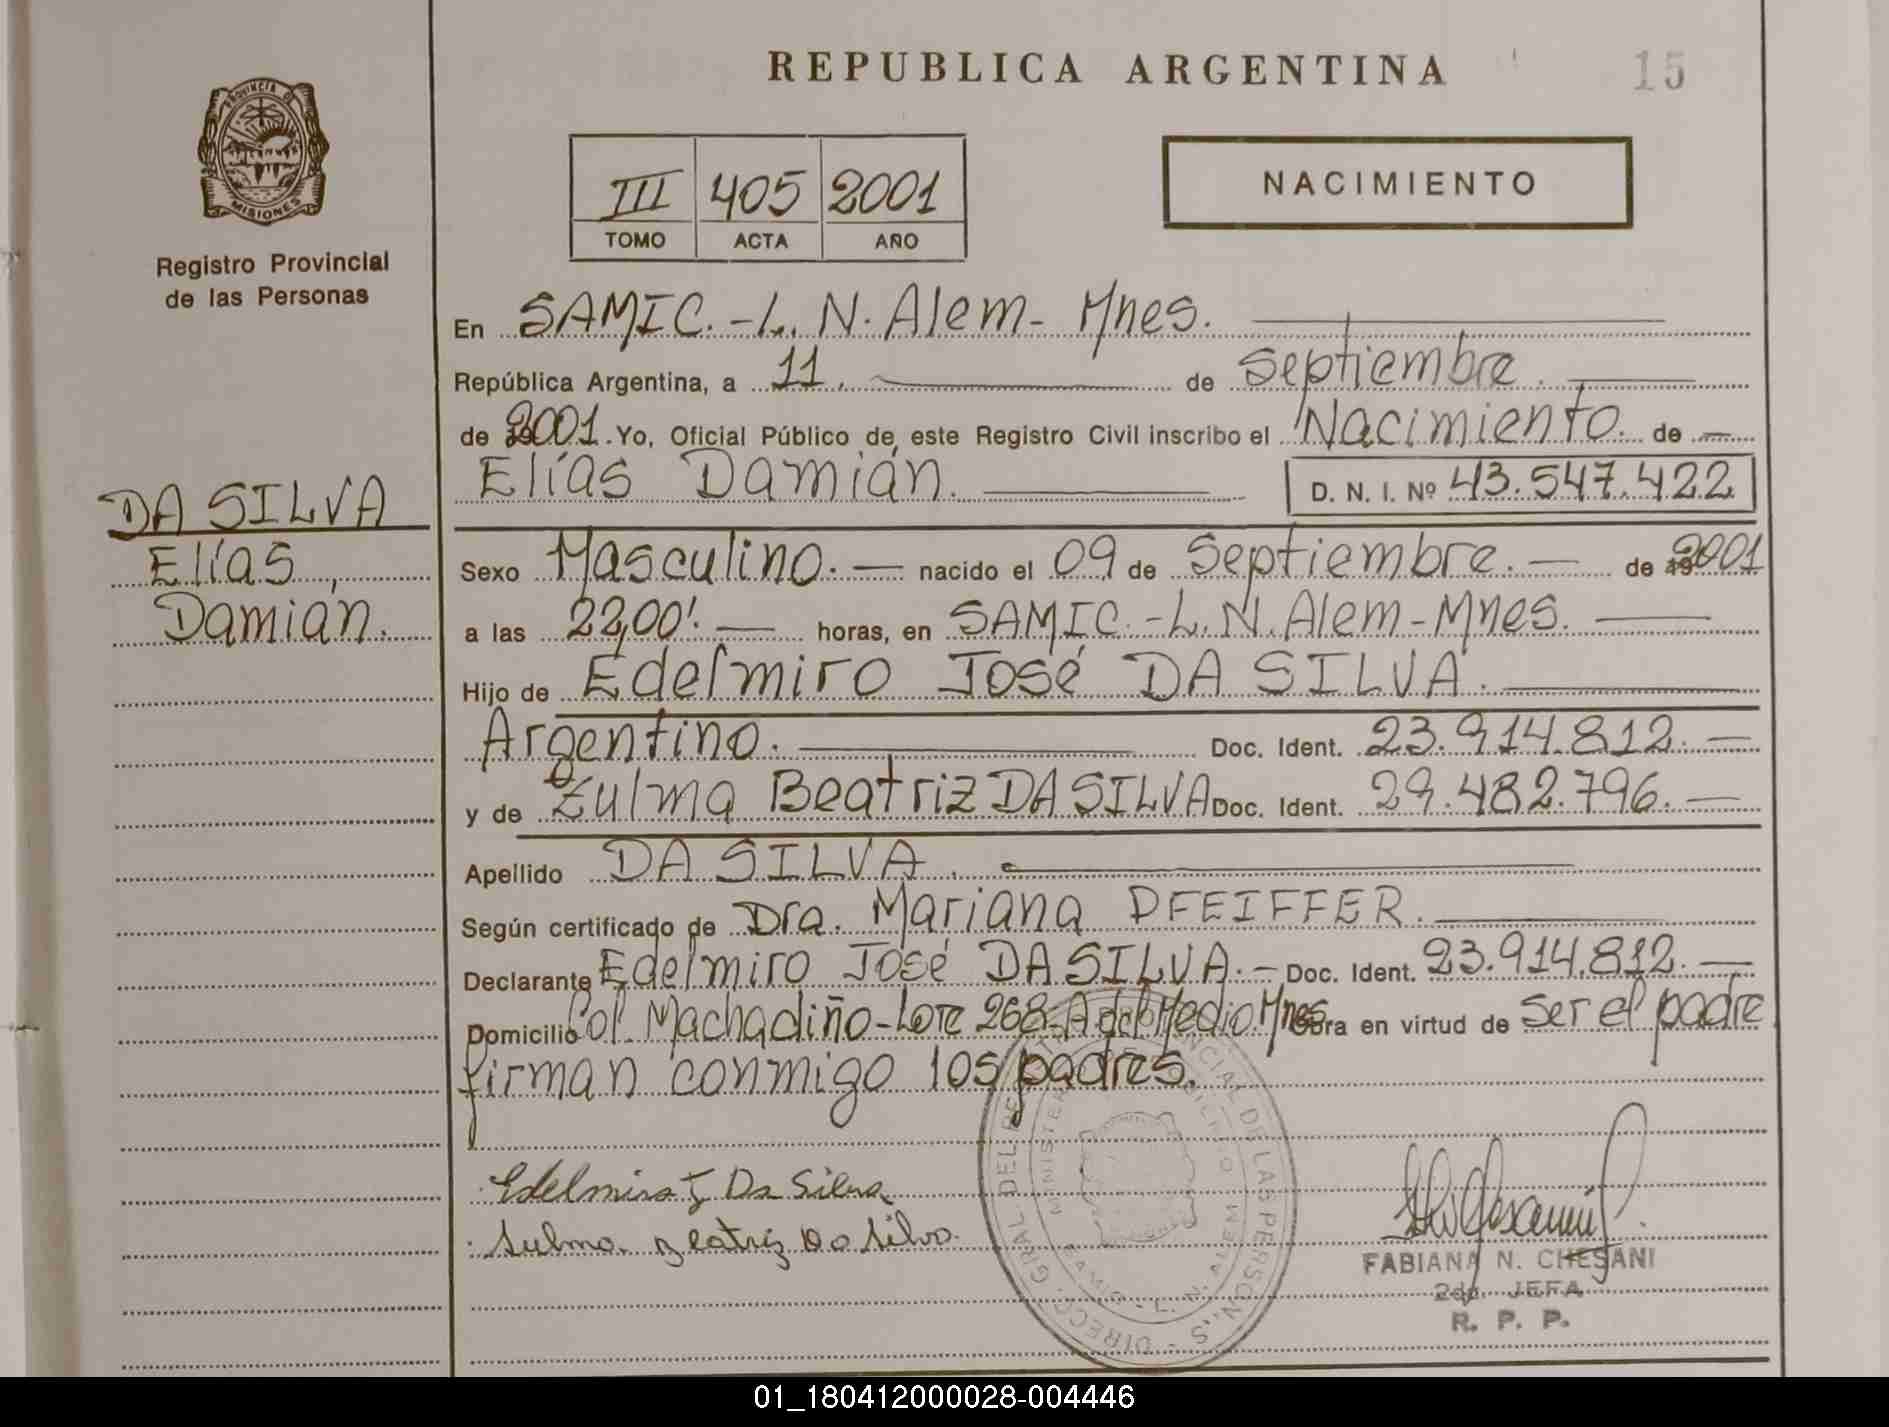 REPUBLICA ARGENTINA
15
PROVINCIA DE
MISIONES
Registro Provincial
de las Personas
III 405 2001
TOMO ACTA AÑO
NACIMIENTO
En SAMIC.-L.N.Alem- Mnes.
República Argentina, a 11. de Septiembre.
de 2001. Yo, Oficial Público de este Registro Civil inscribo el Nacimiento. de
Elías Damián. D. N. I. Nº 43.547.422
DA SILVA
Elías,
Damián.
Sexo Masculino. nacido el 09 de Septiembre. de 2001
a las 22,00'. horas, en SAMIC.-L.N.Alem-Mnes.
Hijo de Edelmiro José DA SILVA.
Argentino. Doc. Ident. 23.914.812.
y de Zulma Beatriz DA SILVA Doc. Ident. 29.482.796.
Apellido DA SILVA.
Según certificado de Dra. Mariana PFEIFFER.
Declarante Edelmiro José DA SILVA. Doc. Ident. 23.914.812.
Domicilio Col. Machadiño-Lote 268-A del Medio Mnes. Obra en virtud de ser el padre
firman conmigo los padres.
Edelmiro J Da Silva
Sulma Beatriz Da Silva
FABIANA N. CHESANI
2da. JEFA
R. P. P.
01_180412000028-004446